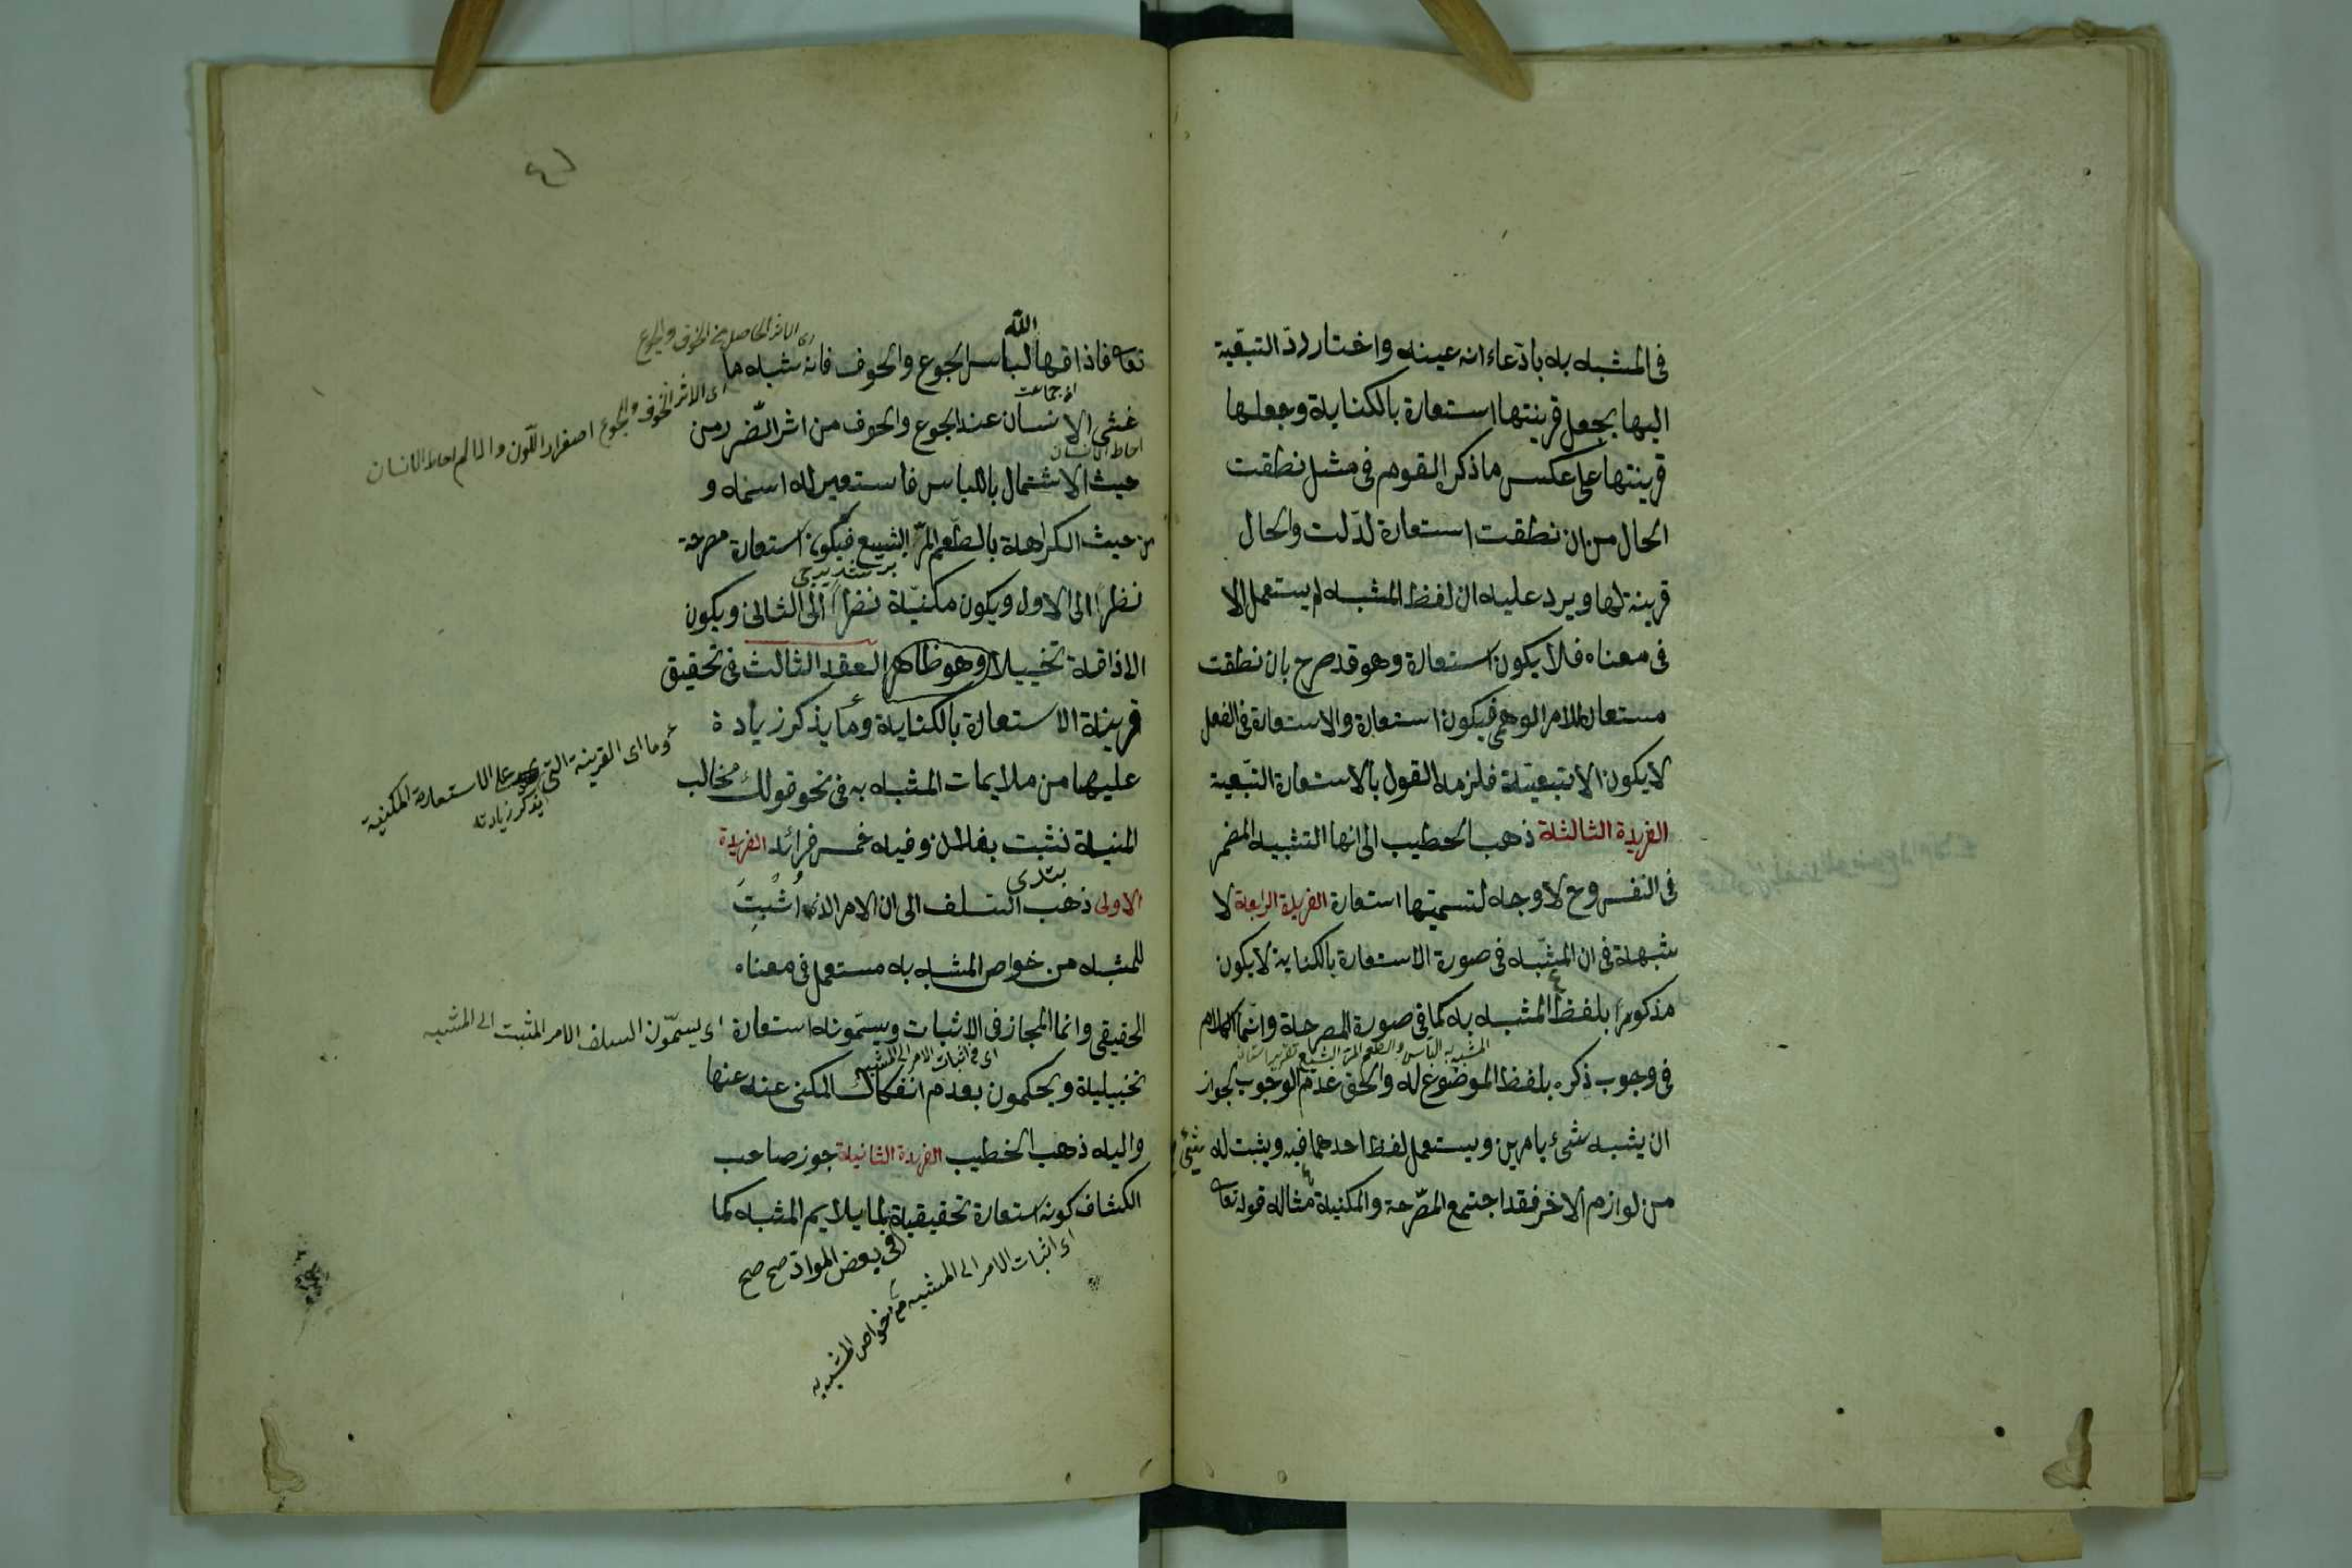 في المشبه به بادعاء انه عينه واختار رد التبعية
اليها بجعل قرينتها استعارة بالكناية وجعلها
قرينتها على عكس ما ذكر القوم في مثل نطقت
الحال من ان نطقت استعارة لدلت والحال
قرينة لها ويرد عليه ان لفظ المشبه لم يستعمل الا
في معناه فلا يكون استعارة وهو قد صرح بان نطقت
مستعار للامر الوهمي فيكون استعارة والاستعارة في الفعل
لا يكون الا تبعية فلزمه القول بالاستعارة التبعية
الفريدة الثالثة ذهب الخطيب الى انها التشبيه المضمر
في النفس وح لا وجه لتسميتها استعارة الفريدة الرابعة لا
شبهة في ان المشبه في صورة الاستعارة بالكناية لا يكون
مذكورا بلفظ المشبه به كما في صورة المصرحة وانما الكلام
في وجوب ذكره بلفظ الموضوع له والحق عدم الوجوب لجواز
ان يشبه شيء بامرين ويستعمل لفظ احدهما فيه ويثبت له شيء
من لوازم الاخر فقد اجتمع المصرحة والمكنية مثاله قوله تعا
اى الاثر الحاصل من الخوف والجوع
الله
تعا فاذاقها لباس الجوع والخوف فانه شبه ما
اى الاثر الخوف والجوع اصفرار اللون والالم احاط الانسان
غشى الانسان عند الجوع والخوف من اثر الضرر من
احاط الانسان
حيث الاشتمال باللباس فاستعير له اسمه و
من حيث الكراهة بالطعم المر البشيع فيكون استعارة مصرحة
نظرا الى الاول ويكون مكنية نظرا الى الثاني ويكون
الاذاقة تخييلا وهو ظاهر العقد الثالث في تحقيق
قرينة الاستعارة بالكناية وما يذكر زيادة
وما اى القرينة التي على الاستعارة المكنية
يذكر زيادته
عليها من ملايمات المشبه به في نحو قولك مخالب
المنية نشبت بفلان وفيه خمس فرائد الفريدة
الاولى ذهب السلف الى ان الامر الذي اثبت
للمشبه من خواص المشبه به مستعمل في معناه
الحقيقي وانما المجاز في الاثبات ويسمونه استعارة
اى يسمون السلف الامر المثبت الى المشبه
اى في اثبات الامر الى المشبه
تخييلية ويحكمون بعدم انفكاك المكنى عنه عنها
واليه ذهب الخطيب الفريدة الثانية جوز صاحب
الكشاف كونه استعارة تحقيقية لما يلايم المشبه كما
في بعض المواد صح صح
اى اثبات الامر الى المشبه من خواص المشبه به